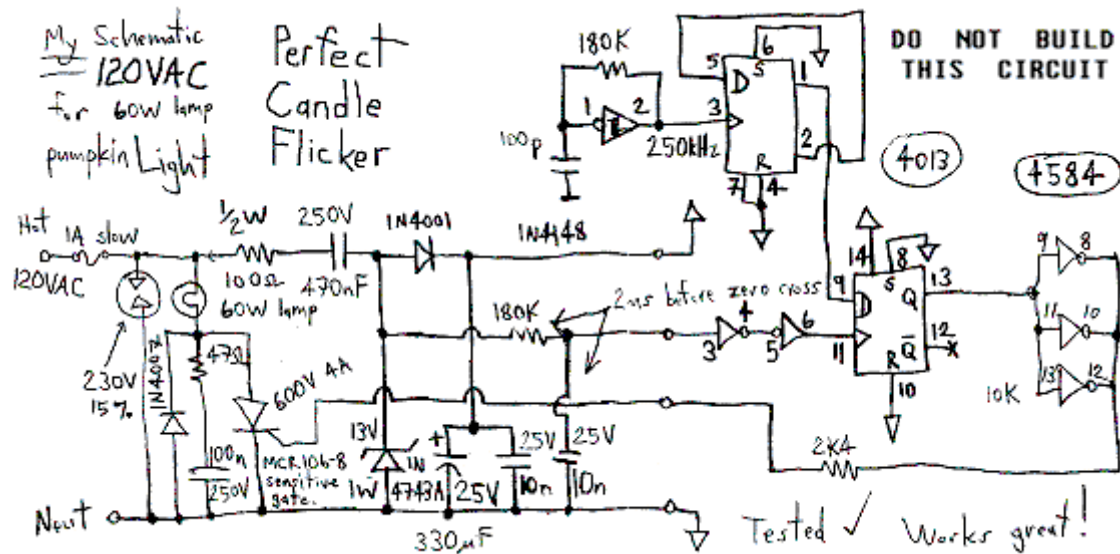 My Schematic
120VAC
for 60W lamp
pumpkin Light
Perfect
Candle
Flicker
DO NOT BUILD
THIS CIRCUIT
180K
1
2
100p
250kHz
5
6
D
S
1
3
2
R
7
4
4013
4584
Hot
1A slow
120VAC
1/2W
100Ω
250V
470nF
1N4001
1N4148
60W lamp
230V
15%
47Ω
600V 4A
100n
250V
MCR106-8
sensitive
gate.
180K
2ms before zero cross
3
4
5
6
14
8
S
9
D
Q
13
11
Q̅
12
R
10
9
8
11
10
13
12
10K
2K4
13V
1N
4743A
1W
+
25V
330µF
25V
10n
25V
10n
Neut
Tested ✓ Works great!